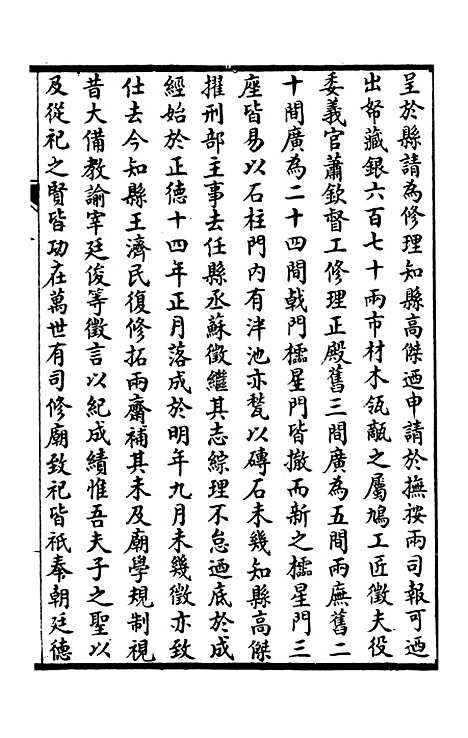 呈於縣請為修理知縣高傑迺申請於撫按兩司報可迺
出帑藏銀六百七十兩市材木瓴甋之屬鳩工匠徵夫役
委義官蕭欽督工修理正殿舊三間廣為五間兩廡舊二
十間廣為二十四間戟門櫺星門皆撤而新之櫺星門三
座皆易以石柱門內有泮池亦甃以磚石未幾知縣高傑
擢刑部主事去任縣丞蘇徵繼其志綜理不怠迺底於成
經始於正德十四年正月落成於明年九月未幾徵亦致
仕去今知縣王濟民復修拓兩齋補其未及廟學規制視
昔大備教諭宰廷俊等徵言以紀成績惟吾夫子之聖以
及從祀之賢皆功在萬世有司修廟致祀皆祇奉朝廷德